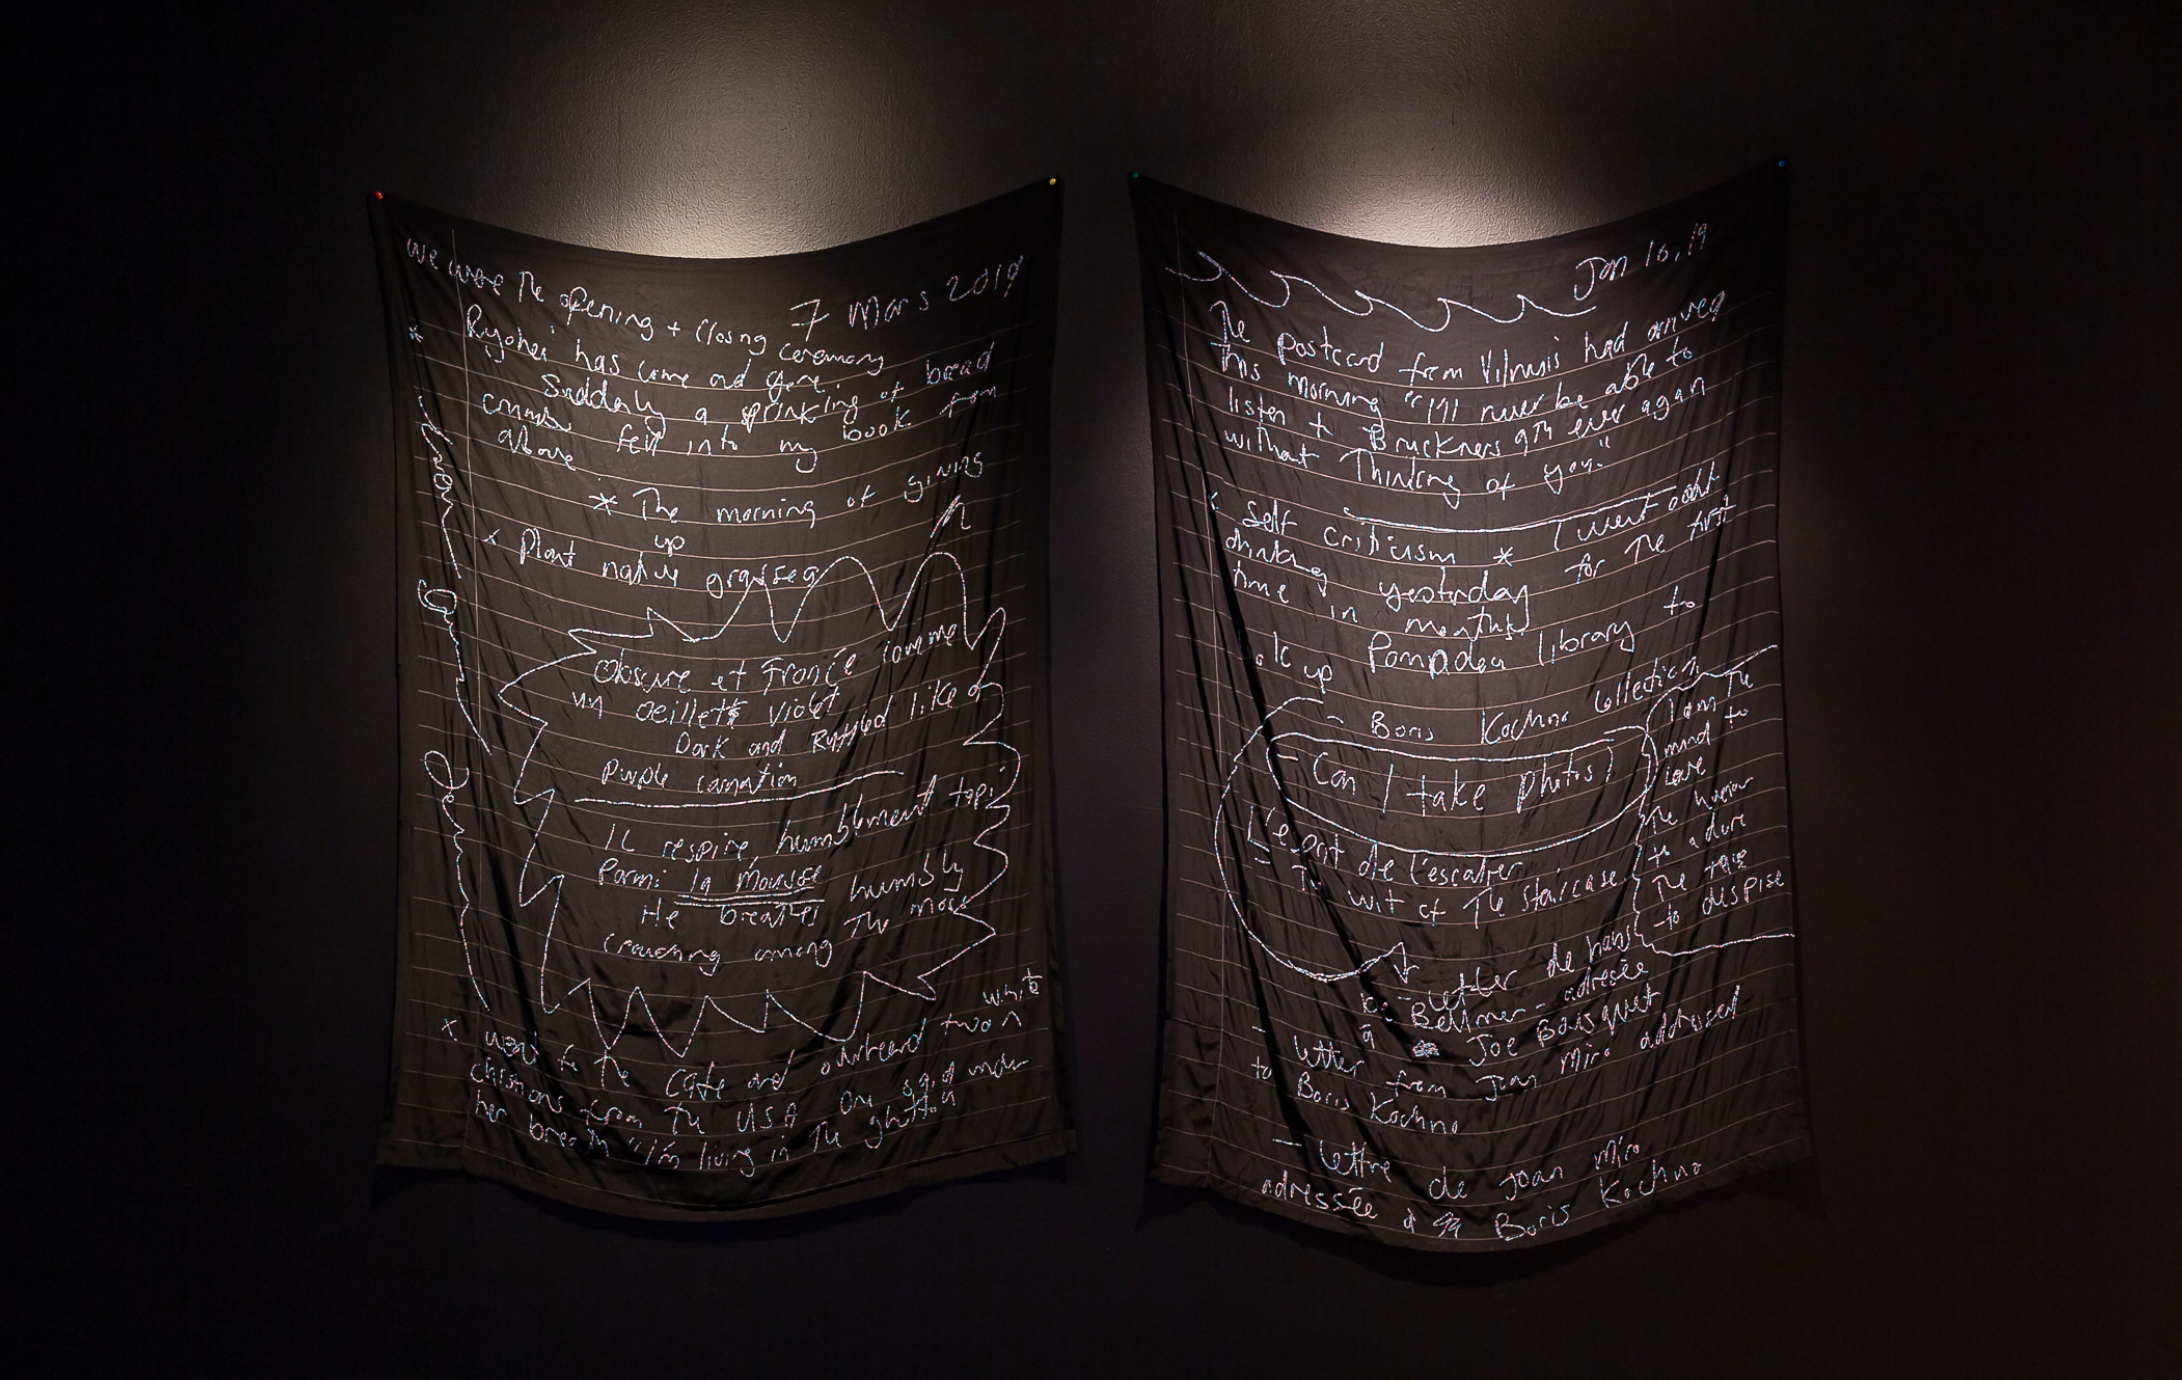 we were The opening + closing ceremony
7 Mars 2019
* Ryohei has come and gone.
Suddenly a sprinkling of bread
crumbs fell into my book from
above
* The morning of giving
up
x Plant native grasses
Obscure et Froncé comme
un oeillets violet
Dark and Ruffled like a
Purple carnation
IL respire, humblement tapi
Parmi la mousse
He breathes humbly
Crouching among The moss
x went to The Cafe and overheard two ^ white
christians from The USA One said under
her breath "I'm living in The ghetto"
Jan 10, 19
The postcard from Vilnuis had arrived
This morning "I'll never be able to
listen to Bruckners 9Th ever again
without Thinking of you."
Self criticism * I went out
drinking yesterday for The first
time in months
Pompadou library to
up
- Boris Kochno Collection
- Can I take photos?
I am The
mind to
love
The human
to adore
The
to dispise
L'esprit de l'escalier
- The wit of The staircase
- Letter de hans
Bellmer - adresée
à Joe Bousquet
- letter from Juan Miro addressed
to Boris Kochno
- lettre de joan miro
adressée à Boris Kochno